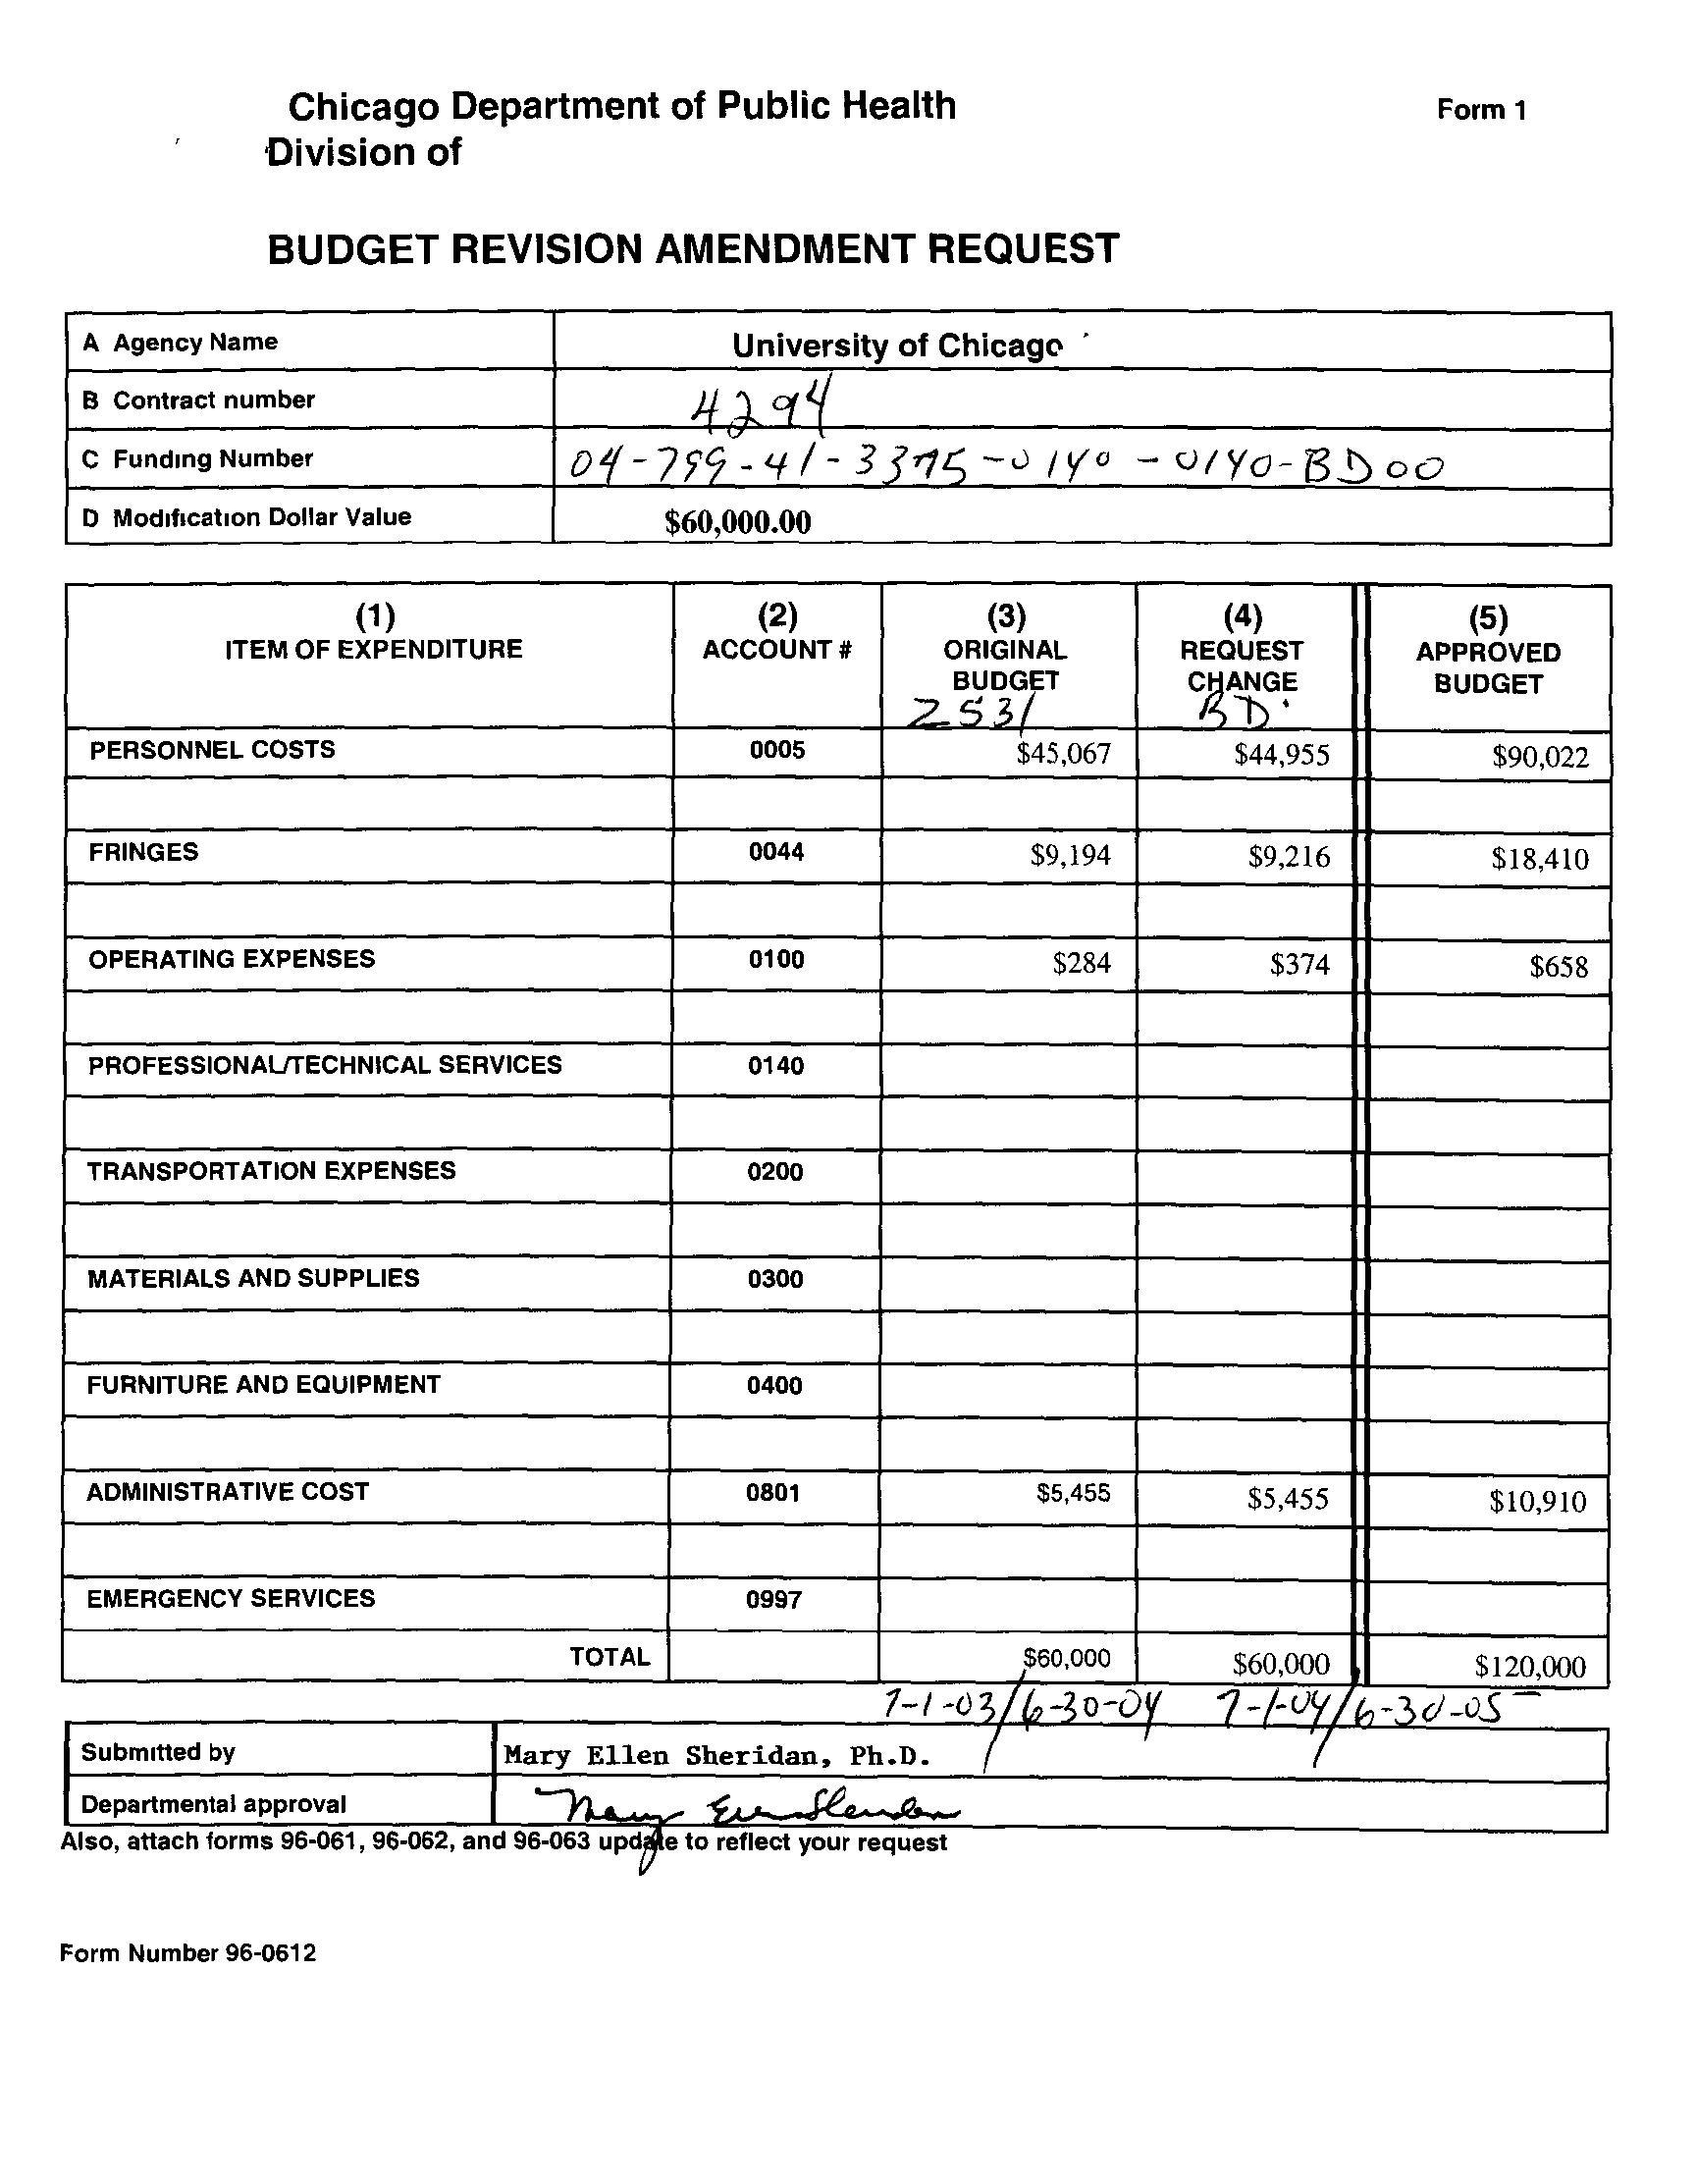 Chicago Department of Public Health
Form 1
Division of
BUDGET REVISION AMENDMENT REQUEST
A Agency Name University of Chicago
B Contract number 4294
C Funding Number 04-799-41-3375-0140-0140-BD00
D Modification Dollar Value $60,000.00
(1) (2) (3) (4) (5)
ITEM OF EXPENDITURE ACCOUNT # ORIGINAL REQUEST APPROVED
BUDGET CHANGE BUDGET
2531 BD
PERSONNEL COSTS 0005 $45,067 $44,955 $90,022
FRINGES 0044 $9,194 $9,216 $18,410
OPERATING EXPENSES 0100 $284 $374 $658
PROFESSIONAL/TECHNICAL SERVICES 0140
TRANSPORTATION EXPENSES 0200
MATERIALS AND SUPPLIES 0300
FURNITURE AND EQUIPMENT 0400
ADMINISTRATIVE COST 0801 $5,455 $5,455 $10,910
EMERGENCY SERVICES 0997
TOTAL $60,000 $60,000 $120,000
7-1-03/6-30-04 7-1-04/6-30-05
Submitted by Mary Ellen Sheridan, Ph.D.
Departmental approval Mary Ellen Sheridan
Also, attach forms 96-061, 96-062, and 96-063 update to reflect your request
Form Number 96-0612